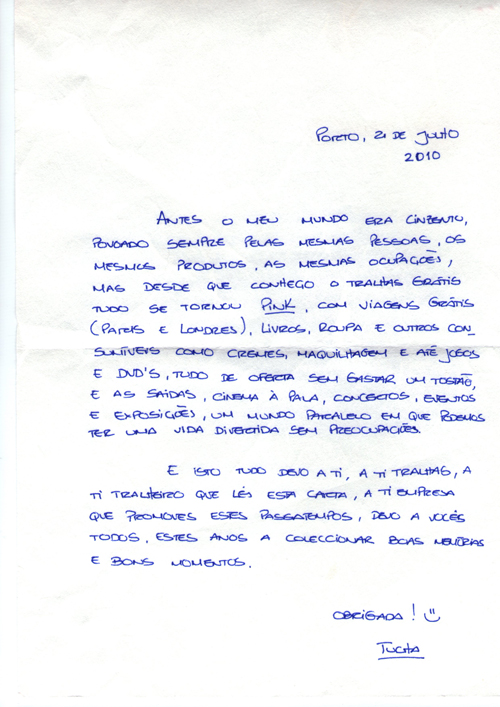 PORTO, 21 DE JULHO
2010
ANTES O MEU MUNDO ERA CINZENTO,
POVOADO SEMPRE PELAS MESMAS PESSOAS, OS
MESMOS PRODUTOS, AS MESMAS OCUPAÇÕES,
MAS DESDE QUE CONHEÇO O TRALHAS GRÁTIS
TUDO SE TORNOU PINK, COM VIAGENS GRÁTIS
(PARIS E LONDRES), LIVROS, ROUPA E OUTROS CON
SUMÍVEIS COMO CREMES, MAQUILHAGEM E ATÉ JOGOS
E DVD'S, TUDO DE OFERTA SEM GASTAR UM TOSTÃO,
E AS SAÍDAS, CINEMA À PALA, CONCERTOS, EVENTOS
E EXPOSIÇÕES, UM MUNDO PARALELO EM QUE PODEMOS
TER UMA VIDA DIVERTIDA SEM PREOCUPAÇÕES.
E ISTO TUDO DEVO A TI, A TI TRALHAS, A
TI TRALHEIRO QUE LÊS ESTA CARTA, A TI EMPRESA
QUE PROMOVES ESTES PASSATEMPOS, DEVO A VOCÊS
TODOS, ESTES ANOS A COLECCIONAR BOAS MEMÓRIAS
E BONS MOMENTOS.
OBRIGADA! :)
TUCHA